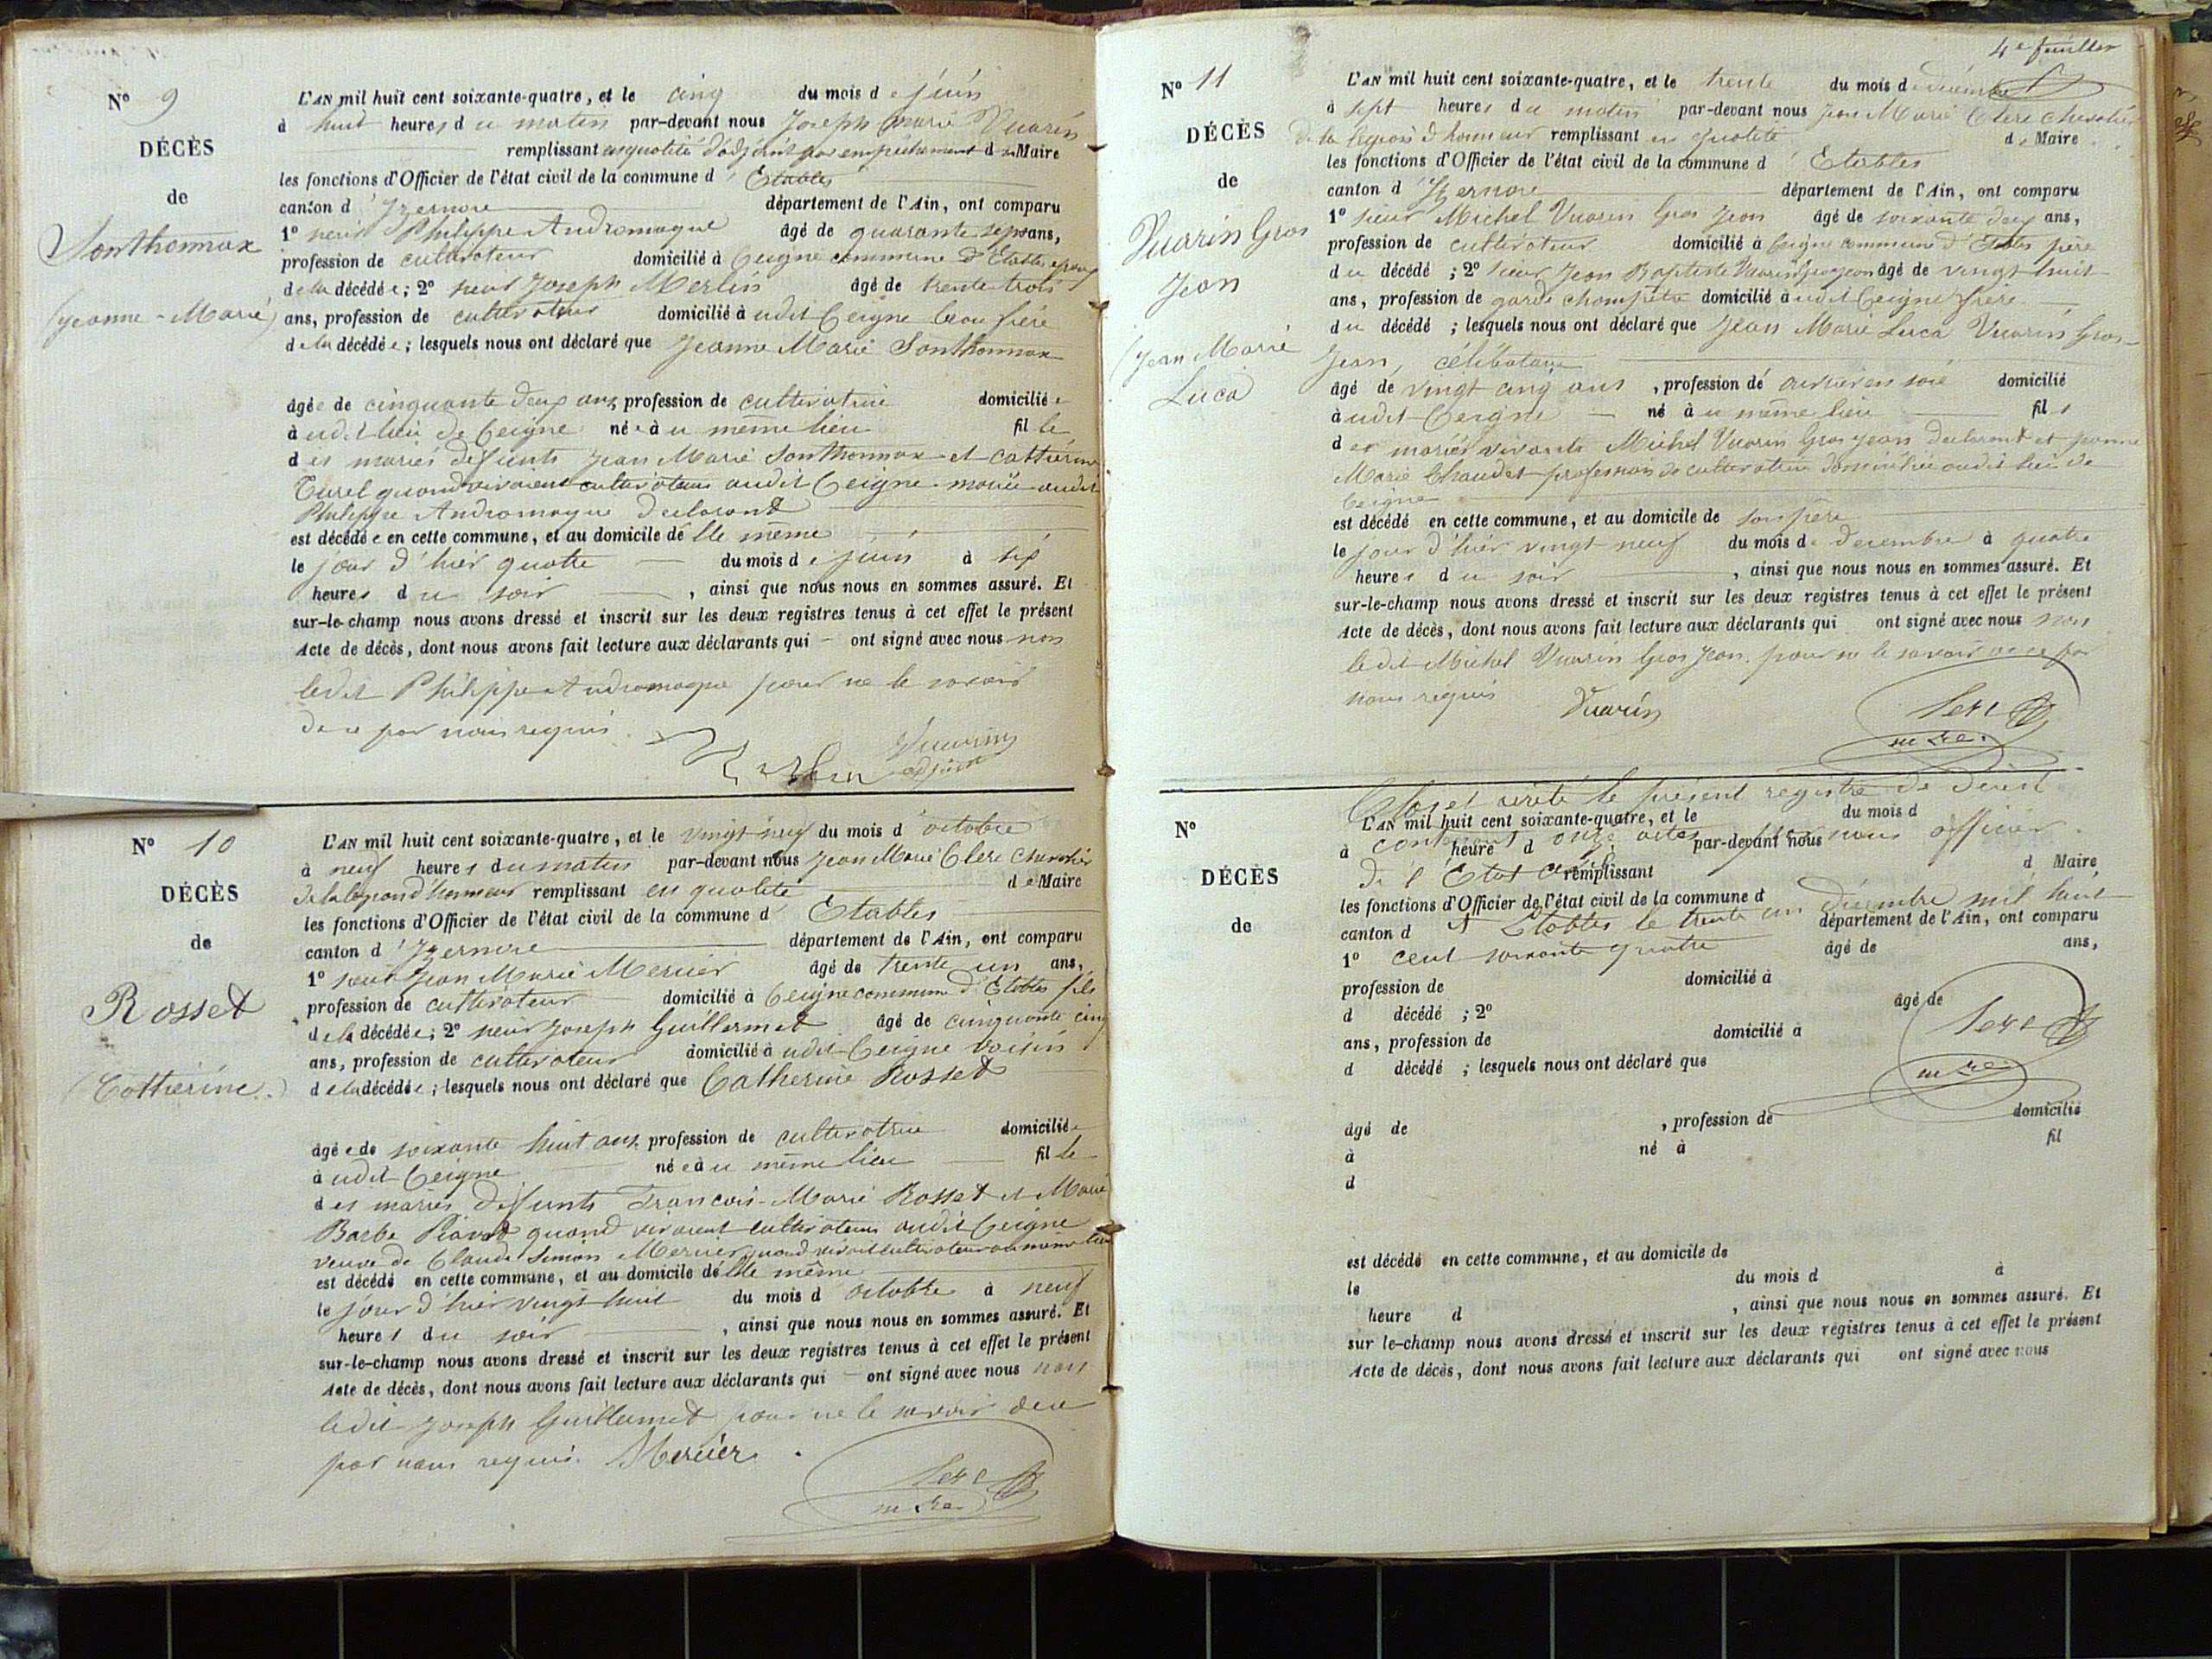 N° 9
DÉCÈS
de
Sonthonnax
(Jeanne-Marie)
L'AN mil huit cent soixante-quatre, et le cinq du mois de juin
à huit heures du matin par-devant nous Joseph Marie Vuarin
remplissant en qualité d'adjoint par empechement du Maire
les fonctions d'Officier de l'état civil de la commune d' Etables
canton d'Izernore département de l'Ain, ont comparu
1° sieur Philippe Andromaque âgé de quarante sept ans,
profession de cultivateur domicilié à Ceigne commune d'Etables époux
de la décédée; 2° sieur Joseph Merlin âgé de trente trois
ans, profession de cultivateur domicilié à udit Ceigne beau frère
de la décédée; lesquels nous ont déclaré que Jeanne Marie Sonthonnax
âgée de cinquante deux ans, profession de cultivatrice domiciliée
à udit lieu de Ceigne née à u même lieu fille
des mariés défunts Jean Marie Sonthonnax et Cathérine
Turel quand vivaient cultivateurs audit Ceigne mariée audit
Philippe Andromaque déclarant
est décédée en cette commune, et au domicile de lle même
le jour d'hier quatre du mois de juin à six
heures du soir, ainsi que nous nous en sommes assuré. Et
sur-le-champ nous avons dressé et inscrit sur les deux registres tenus à cet effet le présent
Acte de décès, dont nous avons fait lecture aux déclarants qui ont signé avec nous non
ledit Philippe Andromaque pour ne le savoir
de ce par nous requis.
Merlin Vuarin
adjoint
N° 10
DÉCÈS
de
Rosset
(Catherine.)
L'AN mil huit cent soixante-quatre, et le vingt neuf du mois d'octobre
à neuf heures du matin par-devant nous Jean Marie Clerc Chevalier
de la légion d'honneur remplissant en qualité de Maire
les fonctions d'Officier de l'état civil de la commune d' Etables
canton d'Izernore département de l'Ain, ont comparu
1° sieur Jean Marie Mercier âgé de trente un ans,
profession de cultivateur domicilié à Ceigne commune d'Etables fils
de la décédée; 2° sieur Joseph Guillermet âgé de cinquante cinq
ans, profession de cultivateur domicilié à udit Ceigne voisin
de la décédée; lesquels nous ont déclaré que Catherine Rosset
âgée de soixante huit ans, profession de cultivatrice domiciliée
à udit Ceigne née à u même lieu fille
des mariés défunts François-Marie Rosset et Marie
Barbe quand vivaient cultivateurs audit Ceigne
veuve de Claude Simon Mercier quand vivait cultivateur au même lieu
est décédé en cette commune, et au domicile de lle même
le jour d'hier vingt huit du mois d octobre à neuf
heures du soir, ainsi que nous nous en sommes assuré. Et
sur-le-champ nous avons dressé et inscrit sur les deux registres tenus à cet effet le présent
Acte de décès, dont nous avons fait lecture aux déclarants qui ont signé avec nous non
ledit Joseph Guillermet pour ne le savoir de ce
par nous requis. Mercier.
Clerc
maire
4e feuillet
N° 11
DÉCÈS
de
Vuarin Gros
Jean
(Jean Marie
Luca
L'AN mil huit cent soixante-quatre, et le trente du mois de décembre
à sept heures du matin par-devant nous Jean Marie Clerc Chevalier
de la légion d'honneur remplissant en qualité de Maire
les fonctions d'Officier de l'état civil de la commune d'Etables
canton d'Izernore département de l'Ain, ont comparu
1° sieur Michel Vuarin Gros Jean âgé de soixante deux ans,
profession de cultivateur domicilié à Ceigne commune d'Etables père
du décédé; 2° sieur Jean Baptiste Vuarin Gros Jean âgé de vingt huit
ans, profession de garde champêtre domicilié à udit Ceigne frère
du décédé; lesquels nous ont déclaré que Jean Marie Luca Vuarin Gros
Jean, célibataire
âgé de vingt cinq ans, profession de ouvrier en soie domicilié
à udit Ceigne né à u même lieu fils
des mariés vivants Michel Vuarin Gros Jean déclarant et Jeanne
Marie Chaudet profession de cultivateurs domiciliés audit lieu de
Ceigne
est décédé en cette commune, et au domicile de son père
le jour d'hier vingt neuf du mois de decembre à quatre
heures du soir, ainsi que nous nous en sommes assuré. Et
sur-le-champ nous avons dressé et inscrit sur les deux registres tenus à cet effet le présent
Acte de décès, dont nous avons fait lecture aux déclarants qui ont signé avec nous non
ledit Michel Vuarin Gros Jean pour ne le savoir de ce par
nous requis Vuarin Clerc
maire.
Clos et arrêté le présent registre de décès
contenant onze actes par nous officier
de l'Etat civil
A Etables le trente un décembre mil huit
cent soixante quatre
Clerc
maire
N°
DÉCÈS
de
L'AN mil huit cent soixante-quatre, et le du mois d
à heure d par-devant nous
remplissant d Maire
les fonctions d'Officier de l'état civil de la commune d
canton d département de l'Ain, ont comparu
1° âgé de ans,
profession de domicilié à
d décédé ; 2° âgé de
ans, profession de domicilié à
d décédé ; lesquels nous ont déclaré que
âgé de , profession de domicilié
à né à fil
d
est décédé en cette commune, et au domicile de
le du mois d à
heure d , ainsi que nous nous en sommes assuré. Et
sur le-champ nous avons dressé et inscrit sur les deux registres tenus à cet effet le présent
Acte de décès, dont nous avons fait lecture aux déclarants qui ont signé avec nous